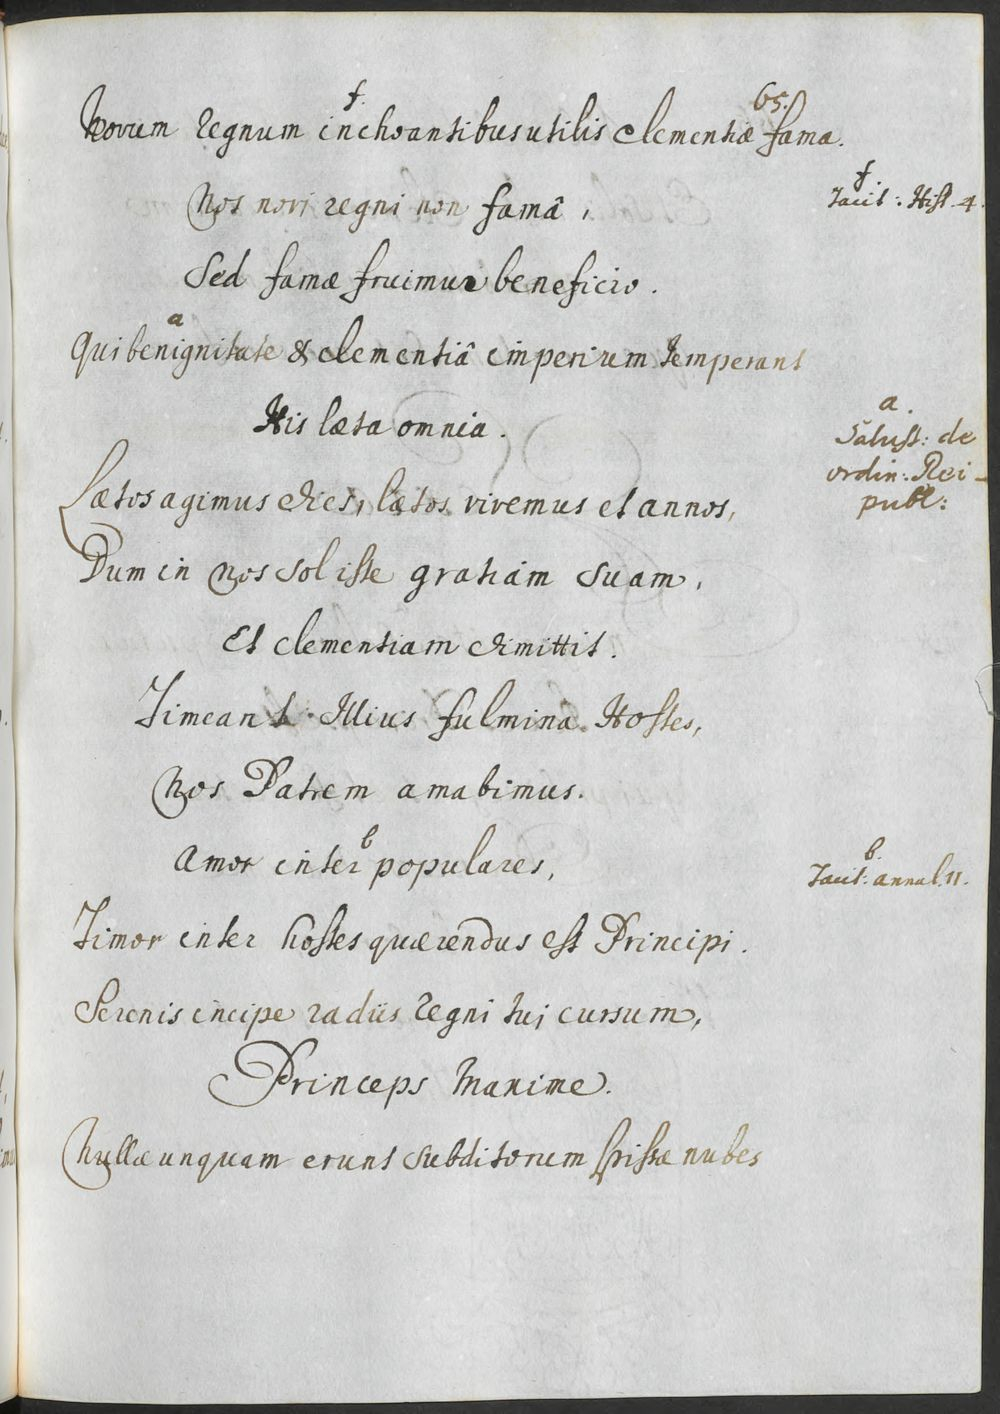 65.
f.
Novum regnum inchoantibus utilis clementiæ fama.
f.
Tacit: Hist. 4.
Nos novi regni non famâ,
Sed famæ fruimur beneficio.
a
Qui benignitate & clementiâ imperium temperant
His læta omnia.
a.
Salust: de
ordin: Rei-
publ:
Lætos agimus dies, lætos vivemus et annos,
Dum in nos sol iste gratiam suam,
Et clementiam dimittit.
Timeant Illius fulmina Hostes,
Nos Patrem amabimus.
b
Amor inter populares,
b.
Tacit: annal. 11.
Timor inter hostes quærendus est Principi.
Serenis incipe radiis regni tui cursum,
Princeps Maxime.
Nullæ unquam erunt subditorum spissæ nubes